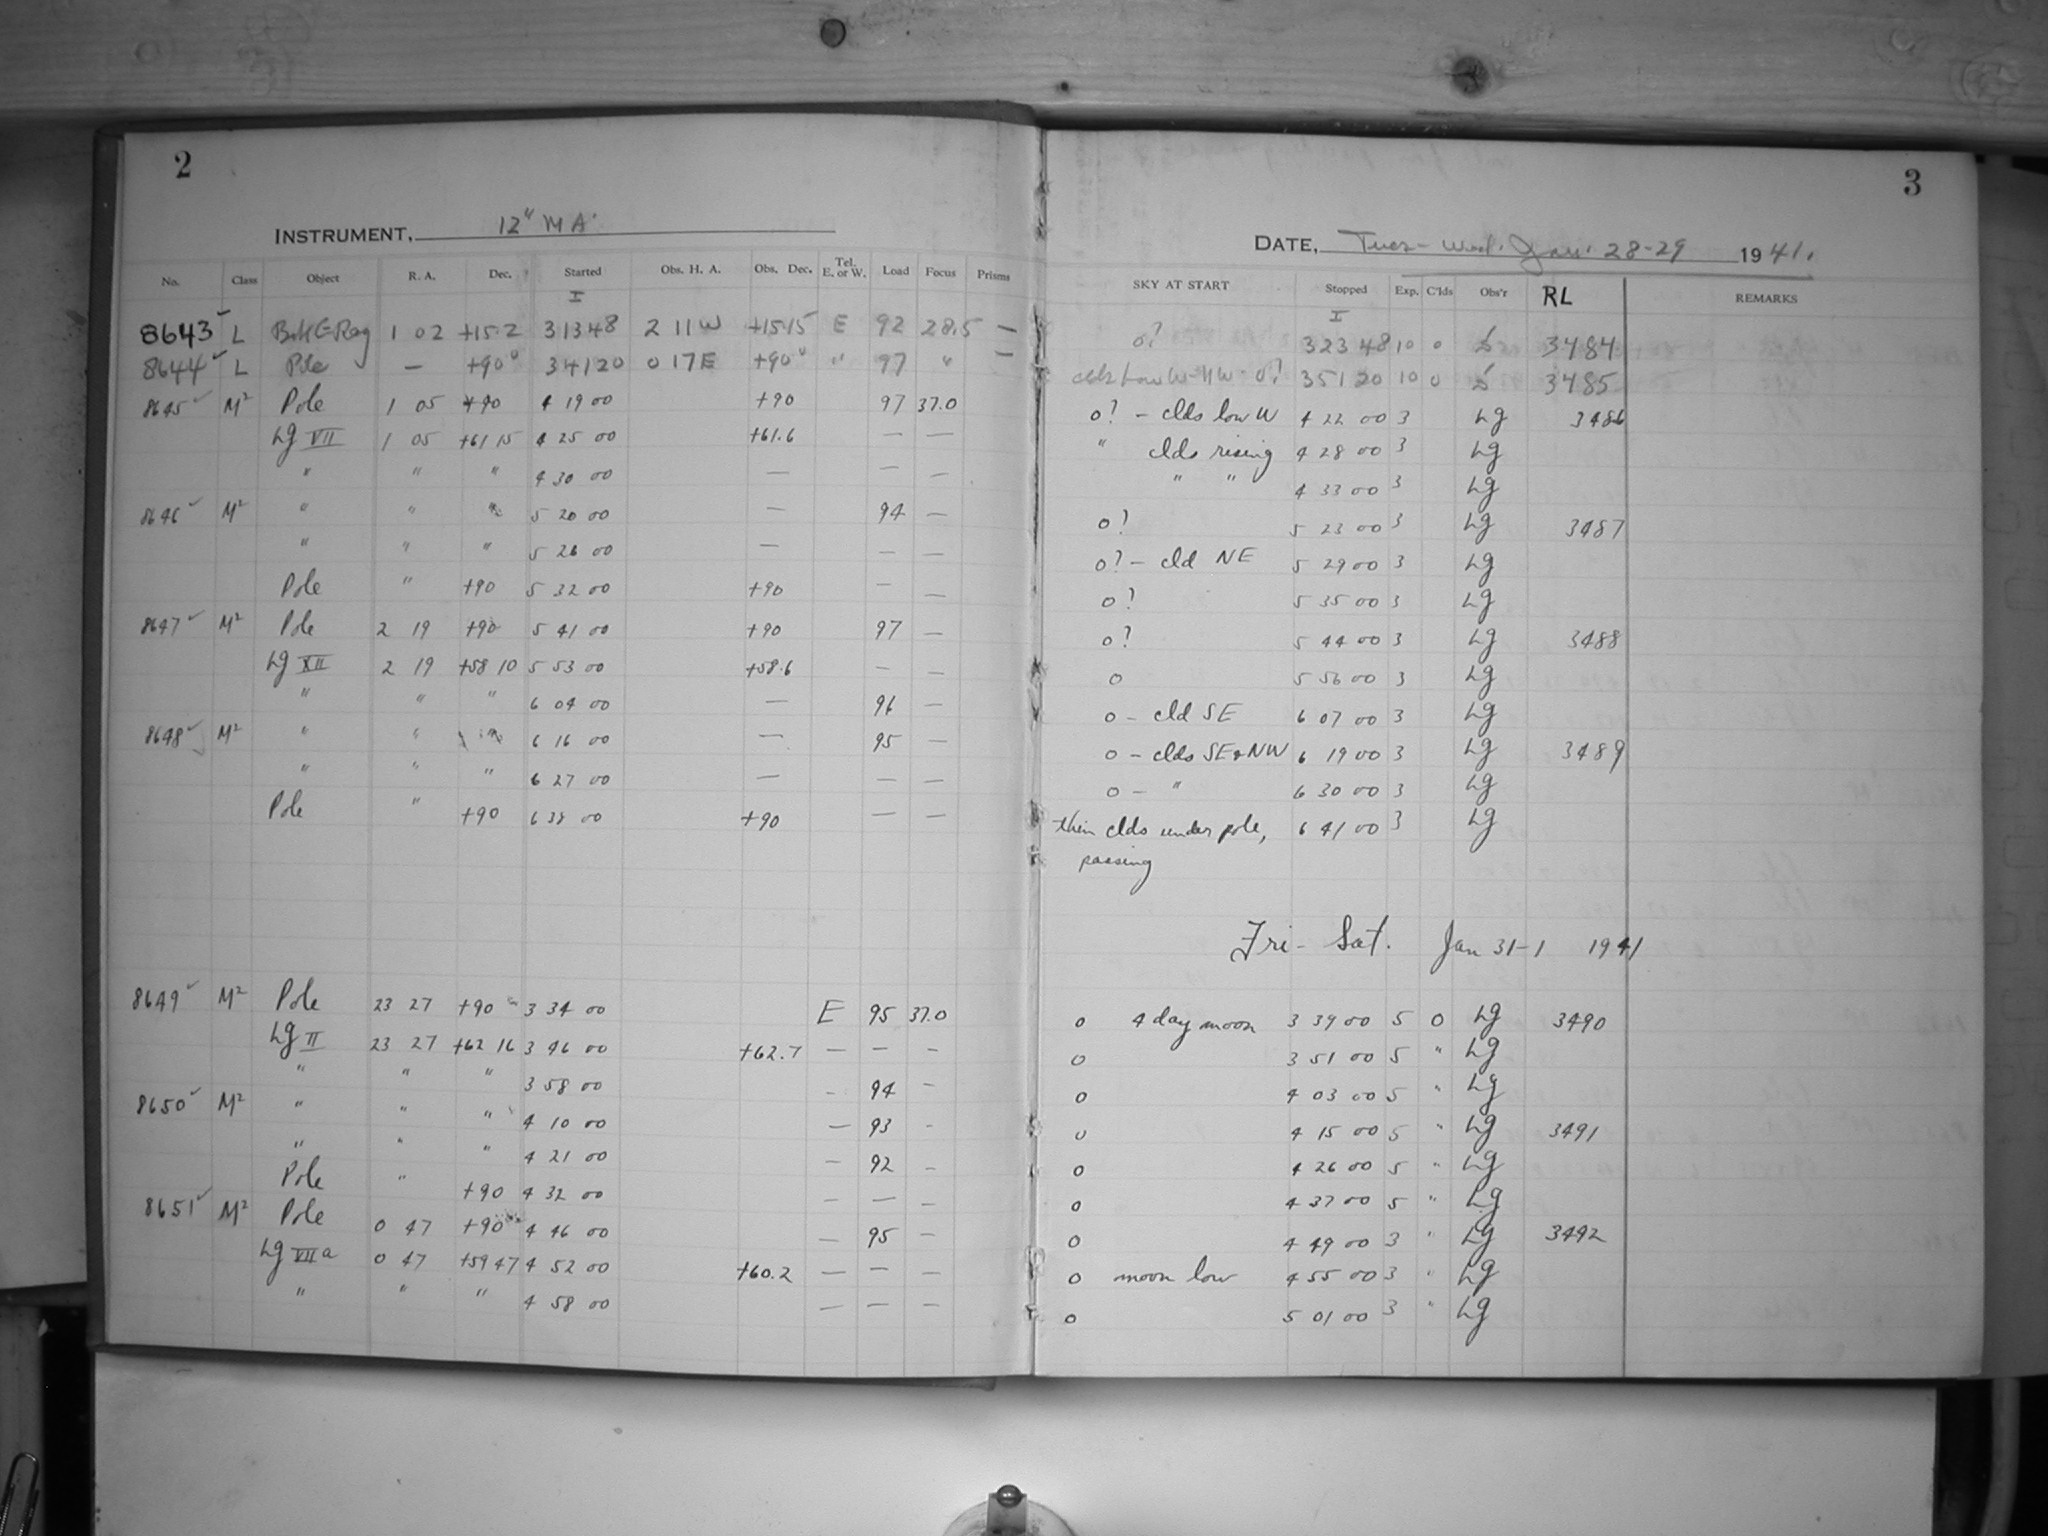 2
INSTRUMENT, 12" M A.
No. Class Object R. A. Dec. Started Obs. H. A. Obs. Dec. Tel. E. or W. Load Focus Prisms
I
8643 L 1 02 +15.2 3 13 48 2 11 W +15.15 E 92 28.5 —
8644 L Pole — +90° 3 41 20 0 17 E +90° " 97 " —
8645 M² Pole 1 05 +90 4 19 00 +90 97 37.0
Lg VII 1 05 +61 15 4 25 00 +61.6 — —
" " " 4 30 00 — — —
8646 M² " " " 5 20 00 — 94 —
" " " 5 26 00 — — —
Pole " +90 5 32 00 +90 — —
8647 M² Pole 2 19 +90 5 41 00 +90 97 —
Lg XII 2 19 +58 10 5 53 00 +58.6 — —
" " " 6 04 00 — 96 —
8648 M² " " " 6 16 00 — 95 —
" " " 6 27 00 — — —
Pole " +90 6 38 00 +90 — —
8649 M² Pole 23 27 +90 3 34 00 E 95 37.0
Lg II 23 27 +62 16 3 46 00 +62.7 — — —
" " " 3 58 00 - 94 -
8650 M² " " " 4 10 00 — 93 -
" " " 4 21 00 — 92 -
Pole " +90 4 32 00 — — —
8651 M² Pole 0 47 +90 4 46 00 — 95 —
Lg VII a 0 47 +59 47 4 52 00 +60.2 — — —
" " " 4 58 00 — — —
3
DATE, Tues - Wed. Jan. 28-29 1941.
SKY AT START Stopped Exp. C'lds Obs'r RL REMARKS
I
0? 3 23 48 10 0 3484
clds low W-NW - 0? 3 51 20 10 0 3485
0? - clds low W 4 22 00 3 Lg 3486
" clds rising 4 28 00 3 Lg
" " 4 33 00 3 Lg
0? 5 23 00 3 Lg 3487
0? - cld NE 5 29 00 3 Lg
0? 5 35 00 3 Lg
0? 5 44 00 3 Lg 3488
0 5 56 00 3 Lg
0 - cld SE 6 07 00 3 Lg
0 - clds SE & NW 6 19 00 3 Lg 3489
0 - " 6 30 00 3 Lg
thin clds under pole, 6 41 00 3 Lg
passing
Fri - Sat. Jan 31-1 1941
0 4 day moon 3 39 00 5 0 Lg 3490
0 3 51 00 5 " Lg
0 4 03 00 5 " Lg
0 4 15 00 5 " Lg 3491
0 4 26 00 5 " Lg
0 4 37 00 5 " Lg
0 4 49 00 3 " Lg 3492
0 moon low 4 55 00 3 " Lg
0 5 01 00 3 " Lg